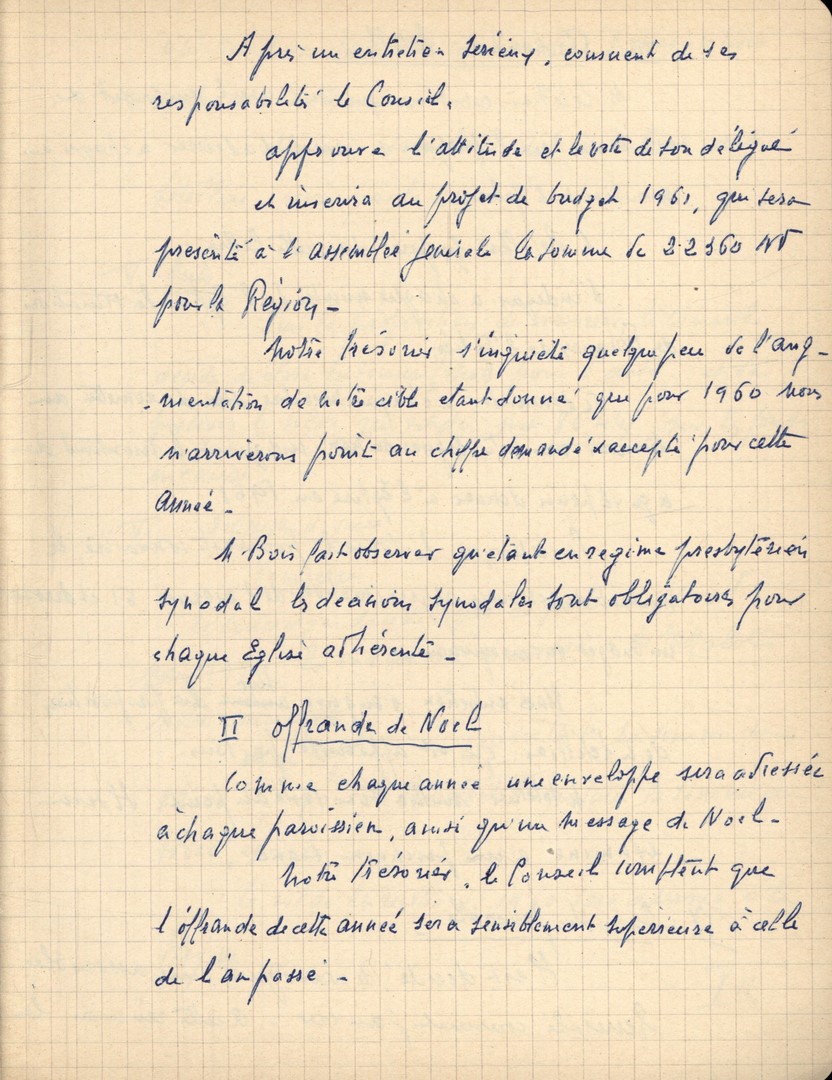 Après un entretien sérieux, conscient de ses
responsabilités le Conseil,
approuve l'attitude et le vote de son délégué
et inscrira au projet de budget 1961, qui sera
présenté à l'assemblée générale la somme de 22360 NF
pour la Région -
Notre trésorier s'inquiète quelque peu de l'aug-
-mentation de notre cible étant donné que pour 1960 nous
n'arriverons point au chiffre demandé & accepté pour cette
année -
M. Bois fait observer qu'étant en régime presbytérien
synodal les decisions synodales sont obligatoires pour
chaque Eglise adhérente -
II offrande de Noel
Comme chaque année une enveloppe sera adressée
à chaque paroissien, ainsi qu'un message de Noel -
Notre trésorier, le Conseil comptent que
l'offrande de cette année sera sensiblement supérieure à celle
de l'an passé -